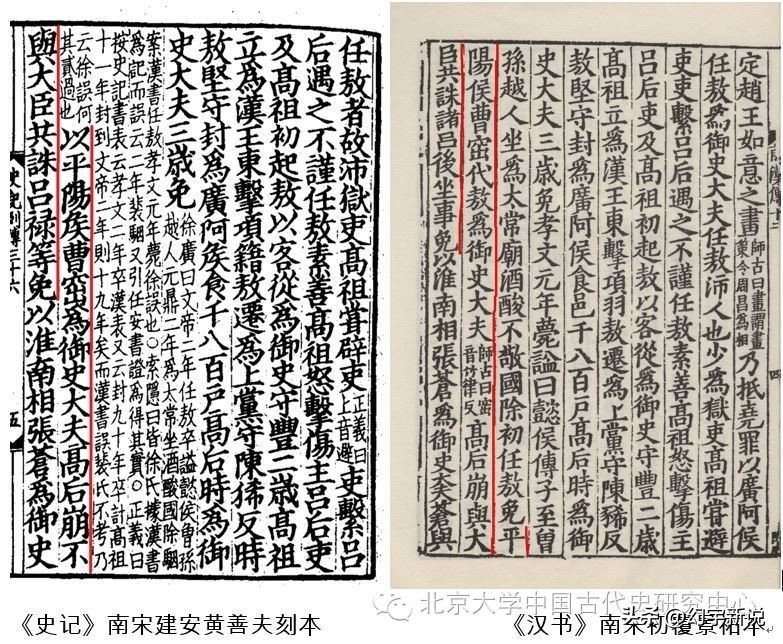 任敖者故沛獄吏髙祖甞辟吏正義曰上音避吏繫吕
后遇之不謹任敖素善髙祖怒擊傷主吕后吏
及髙祖初起敖以客從爲御史守豐二歳髙祖
立爲漢王東擊項籍敖遷爲上黨守陳豨反時
敖堅守封爲廣阿侯食千八百户髙后時爲御
史大夫三歳免徐廣曰文帝二年任敖卒諡懿侯曾孫
越人元鼎二年爲太常坐酒酸國除駰
案漢書任敖孝文元年薨徐誤也○索隱曰皆徐氏據漢書
爲記而誤云二年裴駰又引任安書證爲得其實○正義曰
按史記書表云孝文二年卒漢表又云封九十年卒計髙祖
十一年封到文帝二年則十九年矣而漢書誤裴氏不考乃
云徐誤何
其貳過也以平陽侯曹窋爲御史大夫髙后崩不
與大臣共誅吕禄等免以淮南相張蒼爲御史
史記列傳三十六
五
定趙王如意之畫師古曰畫謂畫策令周昌爲相乃抵堯罪以廣阿侯
任敖爲御史大夫任敖沛人也少爲獄吏髙祖嘗避
吏吏繫吕后遇之不謹任敖素善髙祖怒擊傷主
吕后吏及髙祖初起敖以客從爲御史守豐二歲
髙祖立爲漢王東擊項羽敖遷爲上黨守陳豨反
敖堅守封爲廣阿侯食邑千八百户髙后時爲御
史大夫三歲免孝文元年薨諡曰懿侯傳子至曽
孫越人坐爲太常廟酒酸不敬國除初任敖免平
陽侯曹窋代敖爲御史大夫師古曰窋音竹律反髙后崩與大
臣共誅諸吕後坐事免以淮南相張蒼爲御史大夫蒼與
《史记》南宋建安黄善夫刻本
《汉书》南宋初覆景祐本
北京大学中国古代史研究中心